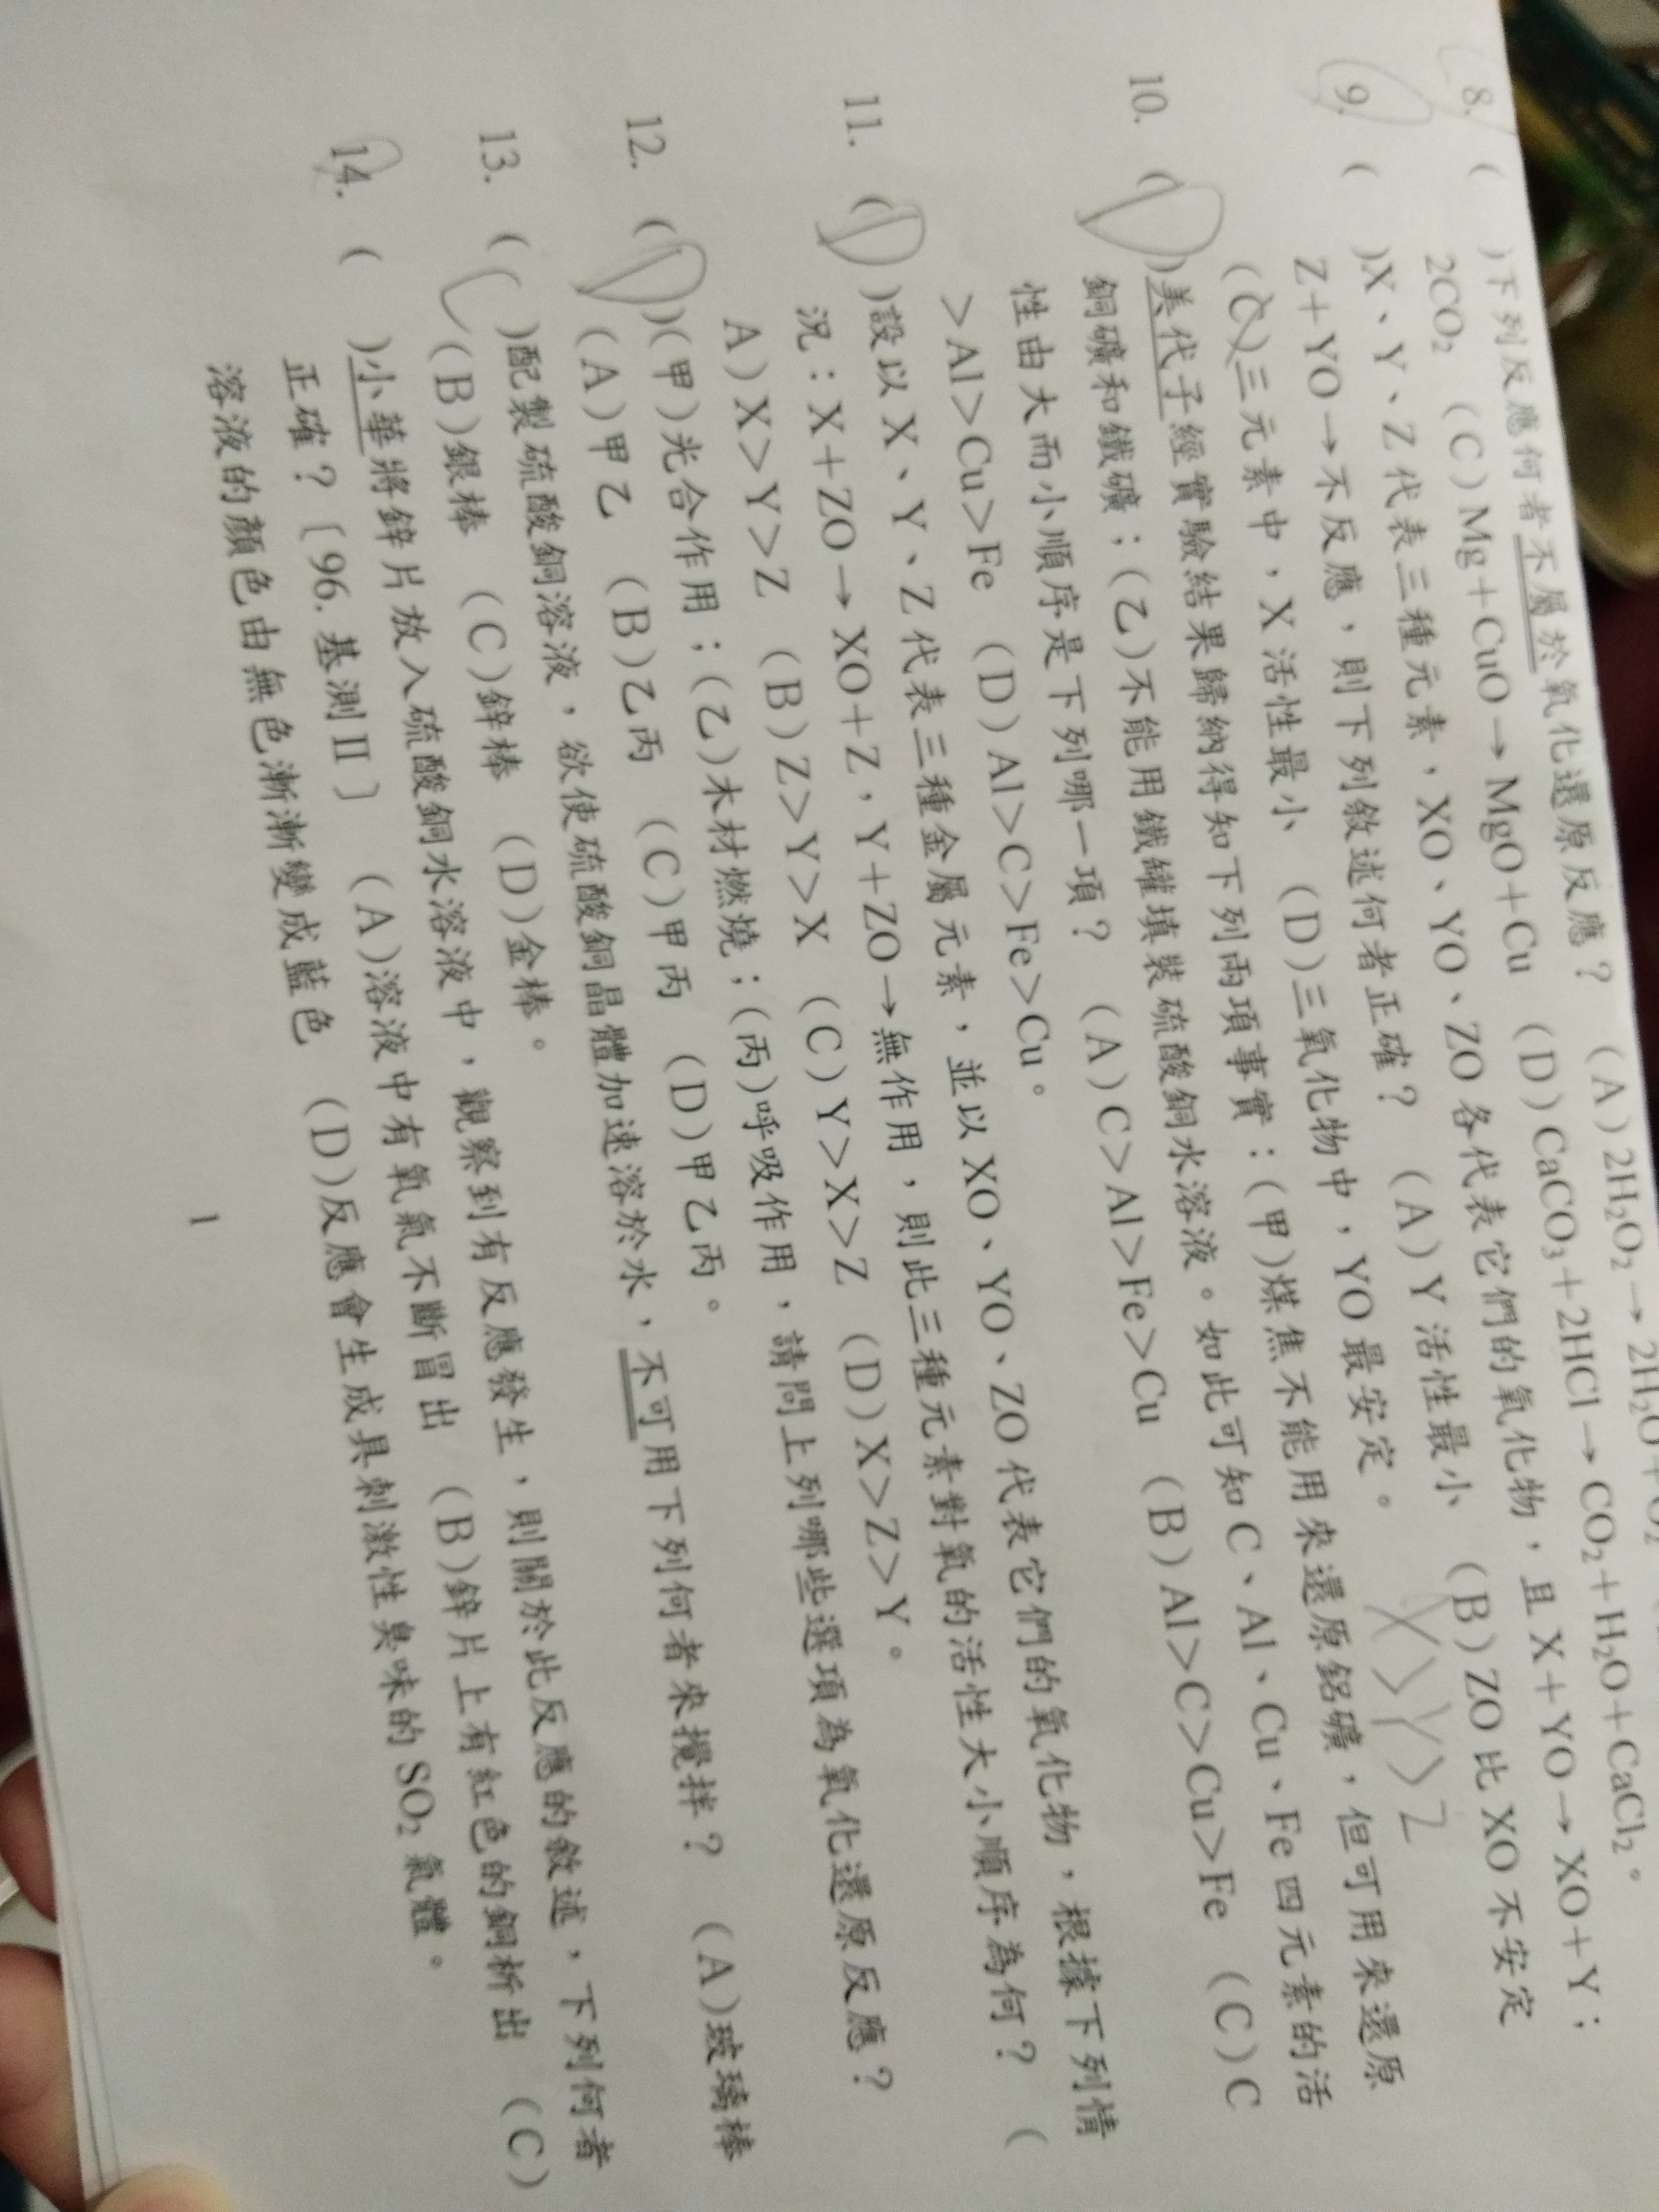 8. (　)下列反應何者不屬於氧化還原反應？ (A)2H₂O₂→2H₂O+O₂
2CO₂ (C)Mg+CuO→MgO+Cu (D)CaCO₃+2HCl→CO₂+H₂O+CaCl₂。
9. (　)X、Y、Z代表三種元素，XO、YO、ZO各代表它們的氧化物，且X+YO→XO+Y；
Z+YO→不反應，則下列敘述何者正確？ (A)Y活性最小 (B)ZO比XO不安定
(C)三元素中，X活性最小 (D)三氧化物中，YO最安定。
X>Y>Z
10. (D)美代子經實驗結果歸納得知下列兩項事實：(甲)煤焦不能用來還原鋁礦，但可用來還原
銅礦和鐵礦；(乙)不能用鐵罐填裝硫酸銅水溶液。如此可知C、Al、Cu、Fe四元素的活
性由大而小順序是下列哪一項？ (A)C>Al>Fe>Cu (B)Al>C>Cu>Fe (C)C
>Al>Cu>Fe (D)Al>C>Fe>Cu。
11. (D)設以X、Y、Z代表三種金屬元素，並以XO、YO、ZO代表它們的氧化物，根據下列情
況：X+ZO→XO+Z，Y+ZO→無作用，則此三種元素對氧的活性大小順序為何？ (
A)X>Y>Z (B)Z>Y>X (C)Y>X>Z (D)X>Z>Y。
12. (D)(甲)光合作用；(乙)木材燃燒；(丙)呼吸作用，請問上列哪些選項為氧化還原反應？
(A)甲乙 (B)乙丙 (C)甲丙 (D)甲乙丙。
13. (C)配製硫酸銅溶液，欲使硫酸銅晶體加速溶於水，不可用下列何者來攪拌？ (A)玻璃棒
(B)銀棒 (C)鋅棒 (D)金棒。
14. (　)小華將鋅片放入硫酸銅水溶液中，觀察到有反應發生，則關於此反應的敘述，下列何者
正確？〔96.基測Ⅱ〕 (A)溶液中有氧氣不斷冒出 (B)鋅片上有紅色的銅析出 (C)
溶液的顏色由無色漸漸變成藍色 (D)反應會生成具刺激性臭味的SO₂氣體。
1